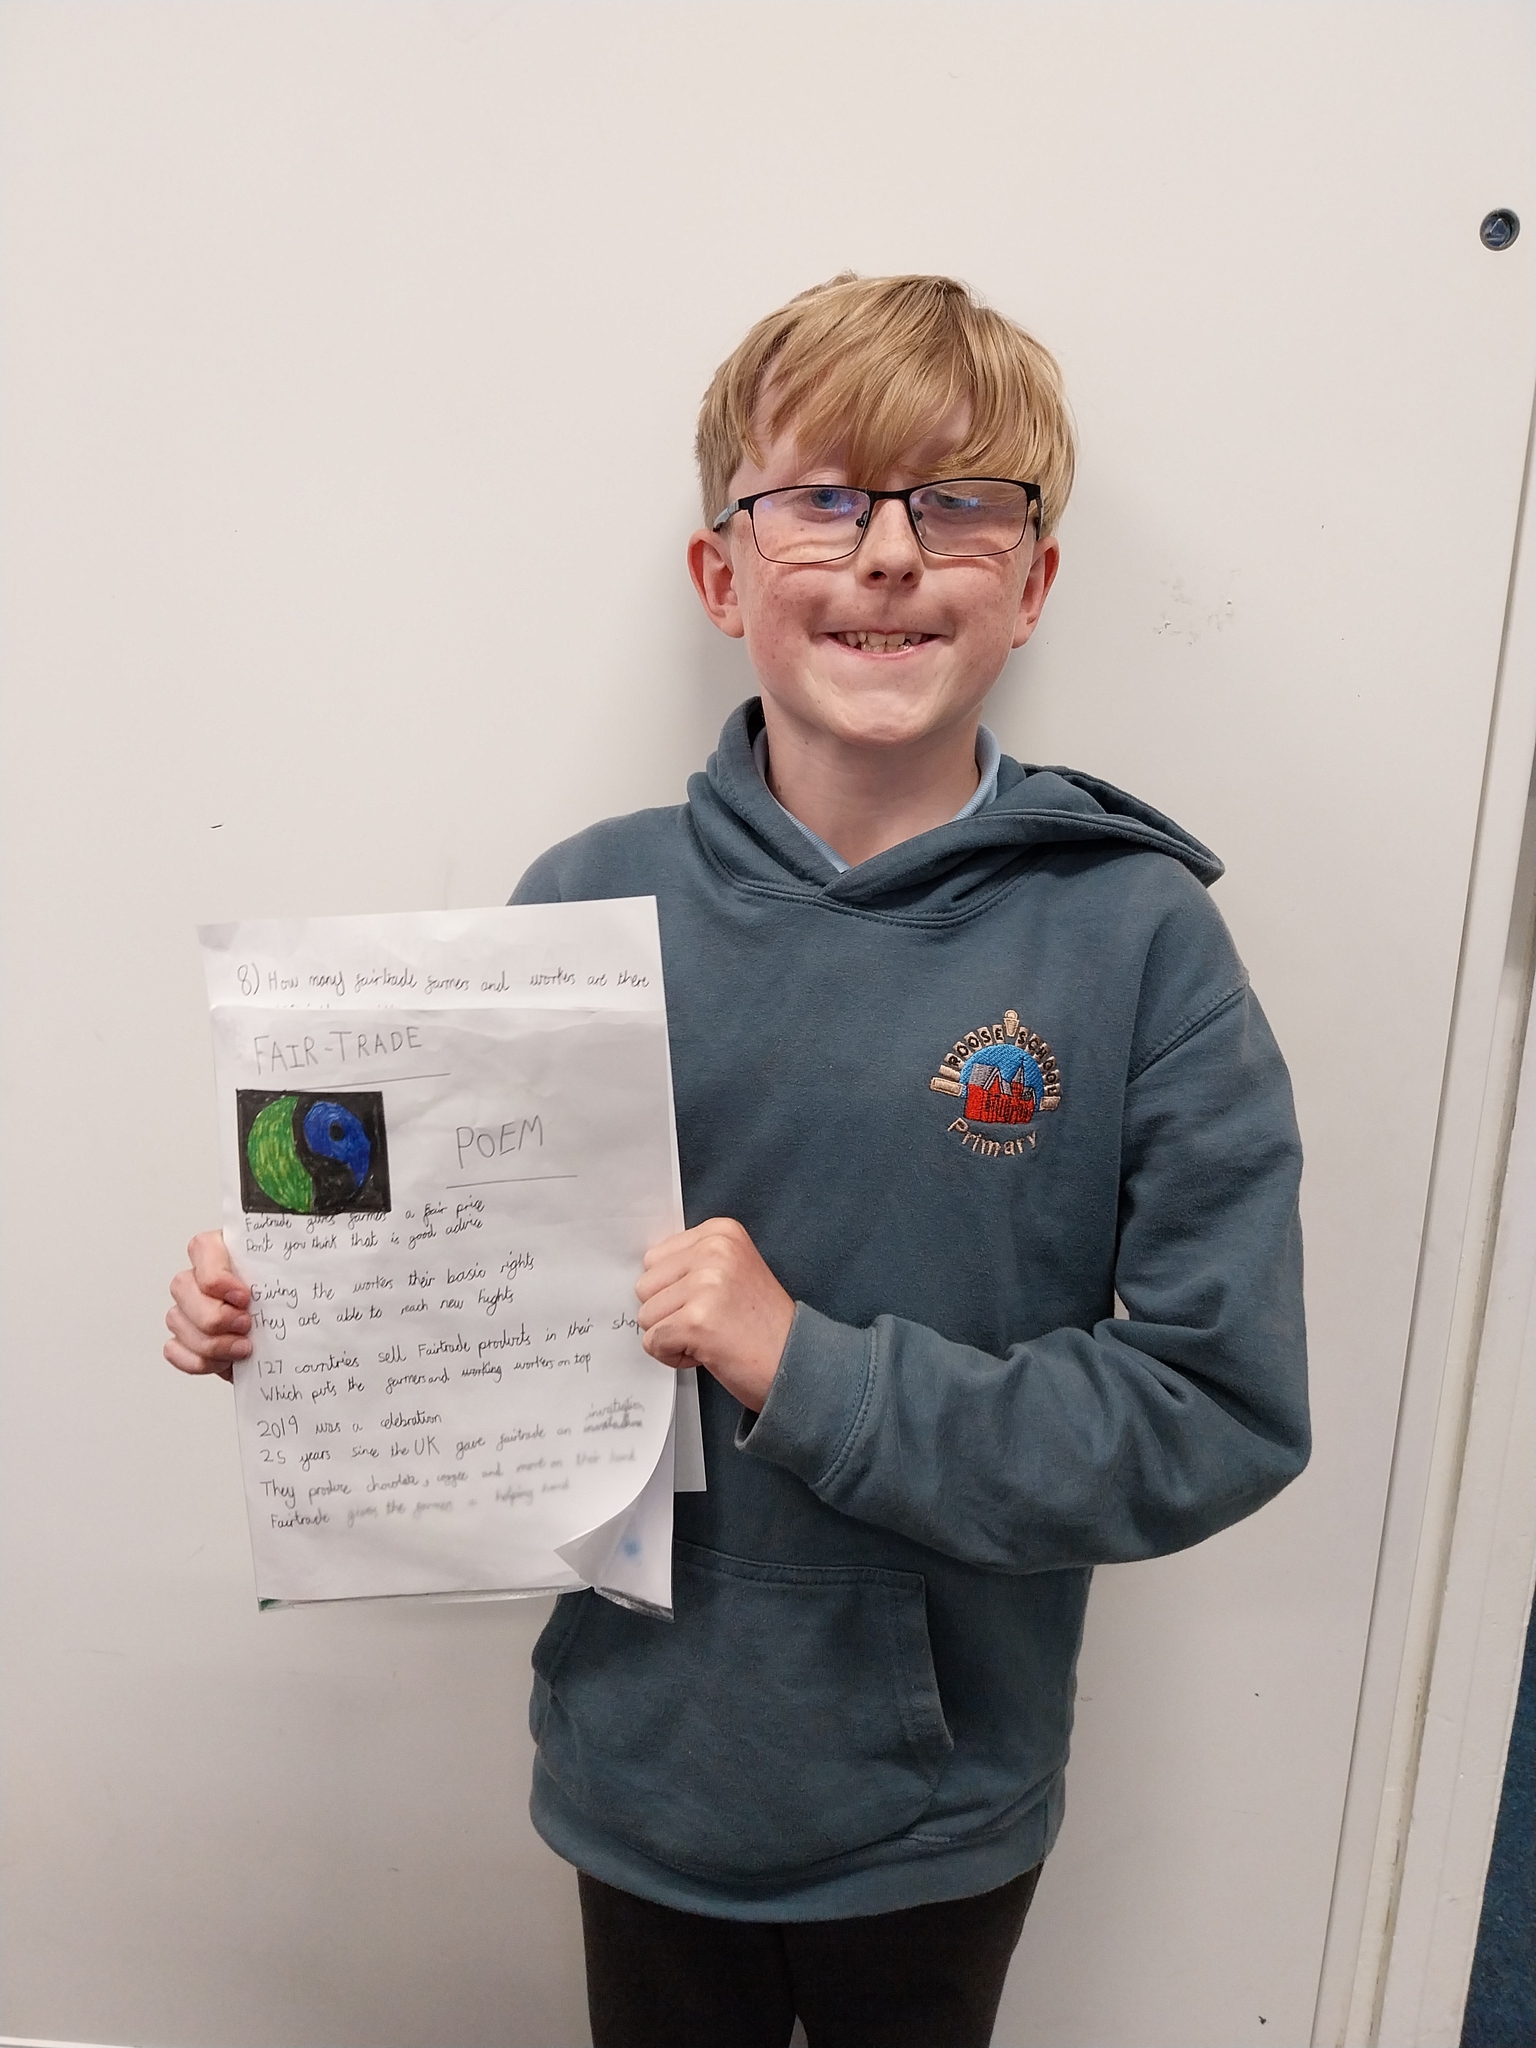 8) How many fairtrade farmers and workers are there
FAIR-TRADE
POEM
Fairtrade gives farmers a fair price
Don't you think that is good advice
Giving the workers their basic rights
They are able to reach new hights
127 countries sell Fairtrade products in their shop
Which puts the farmers and working workers on top
2019 was a celebration
25 years since the UK gave fairtrade an
They produce chocolate, and more on their land
Fairtrade gives the farmers a helping hand
ROOSE SCHOOL
Primary